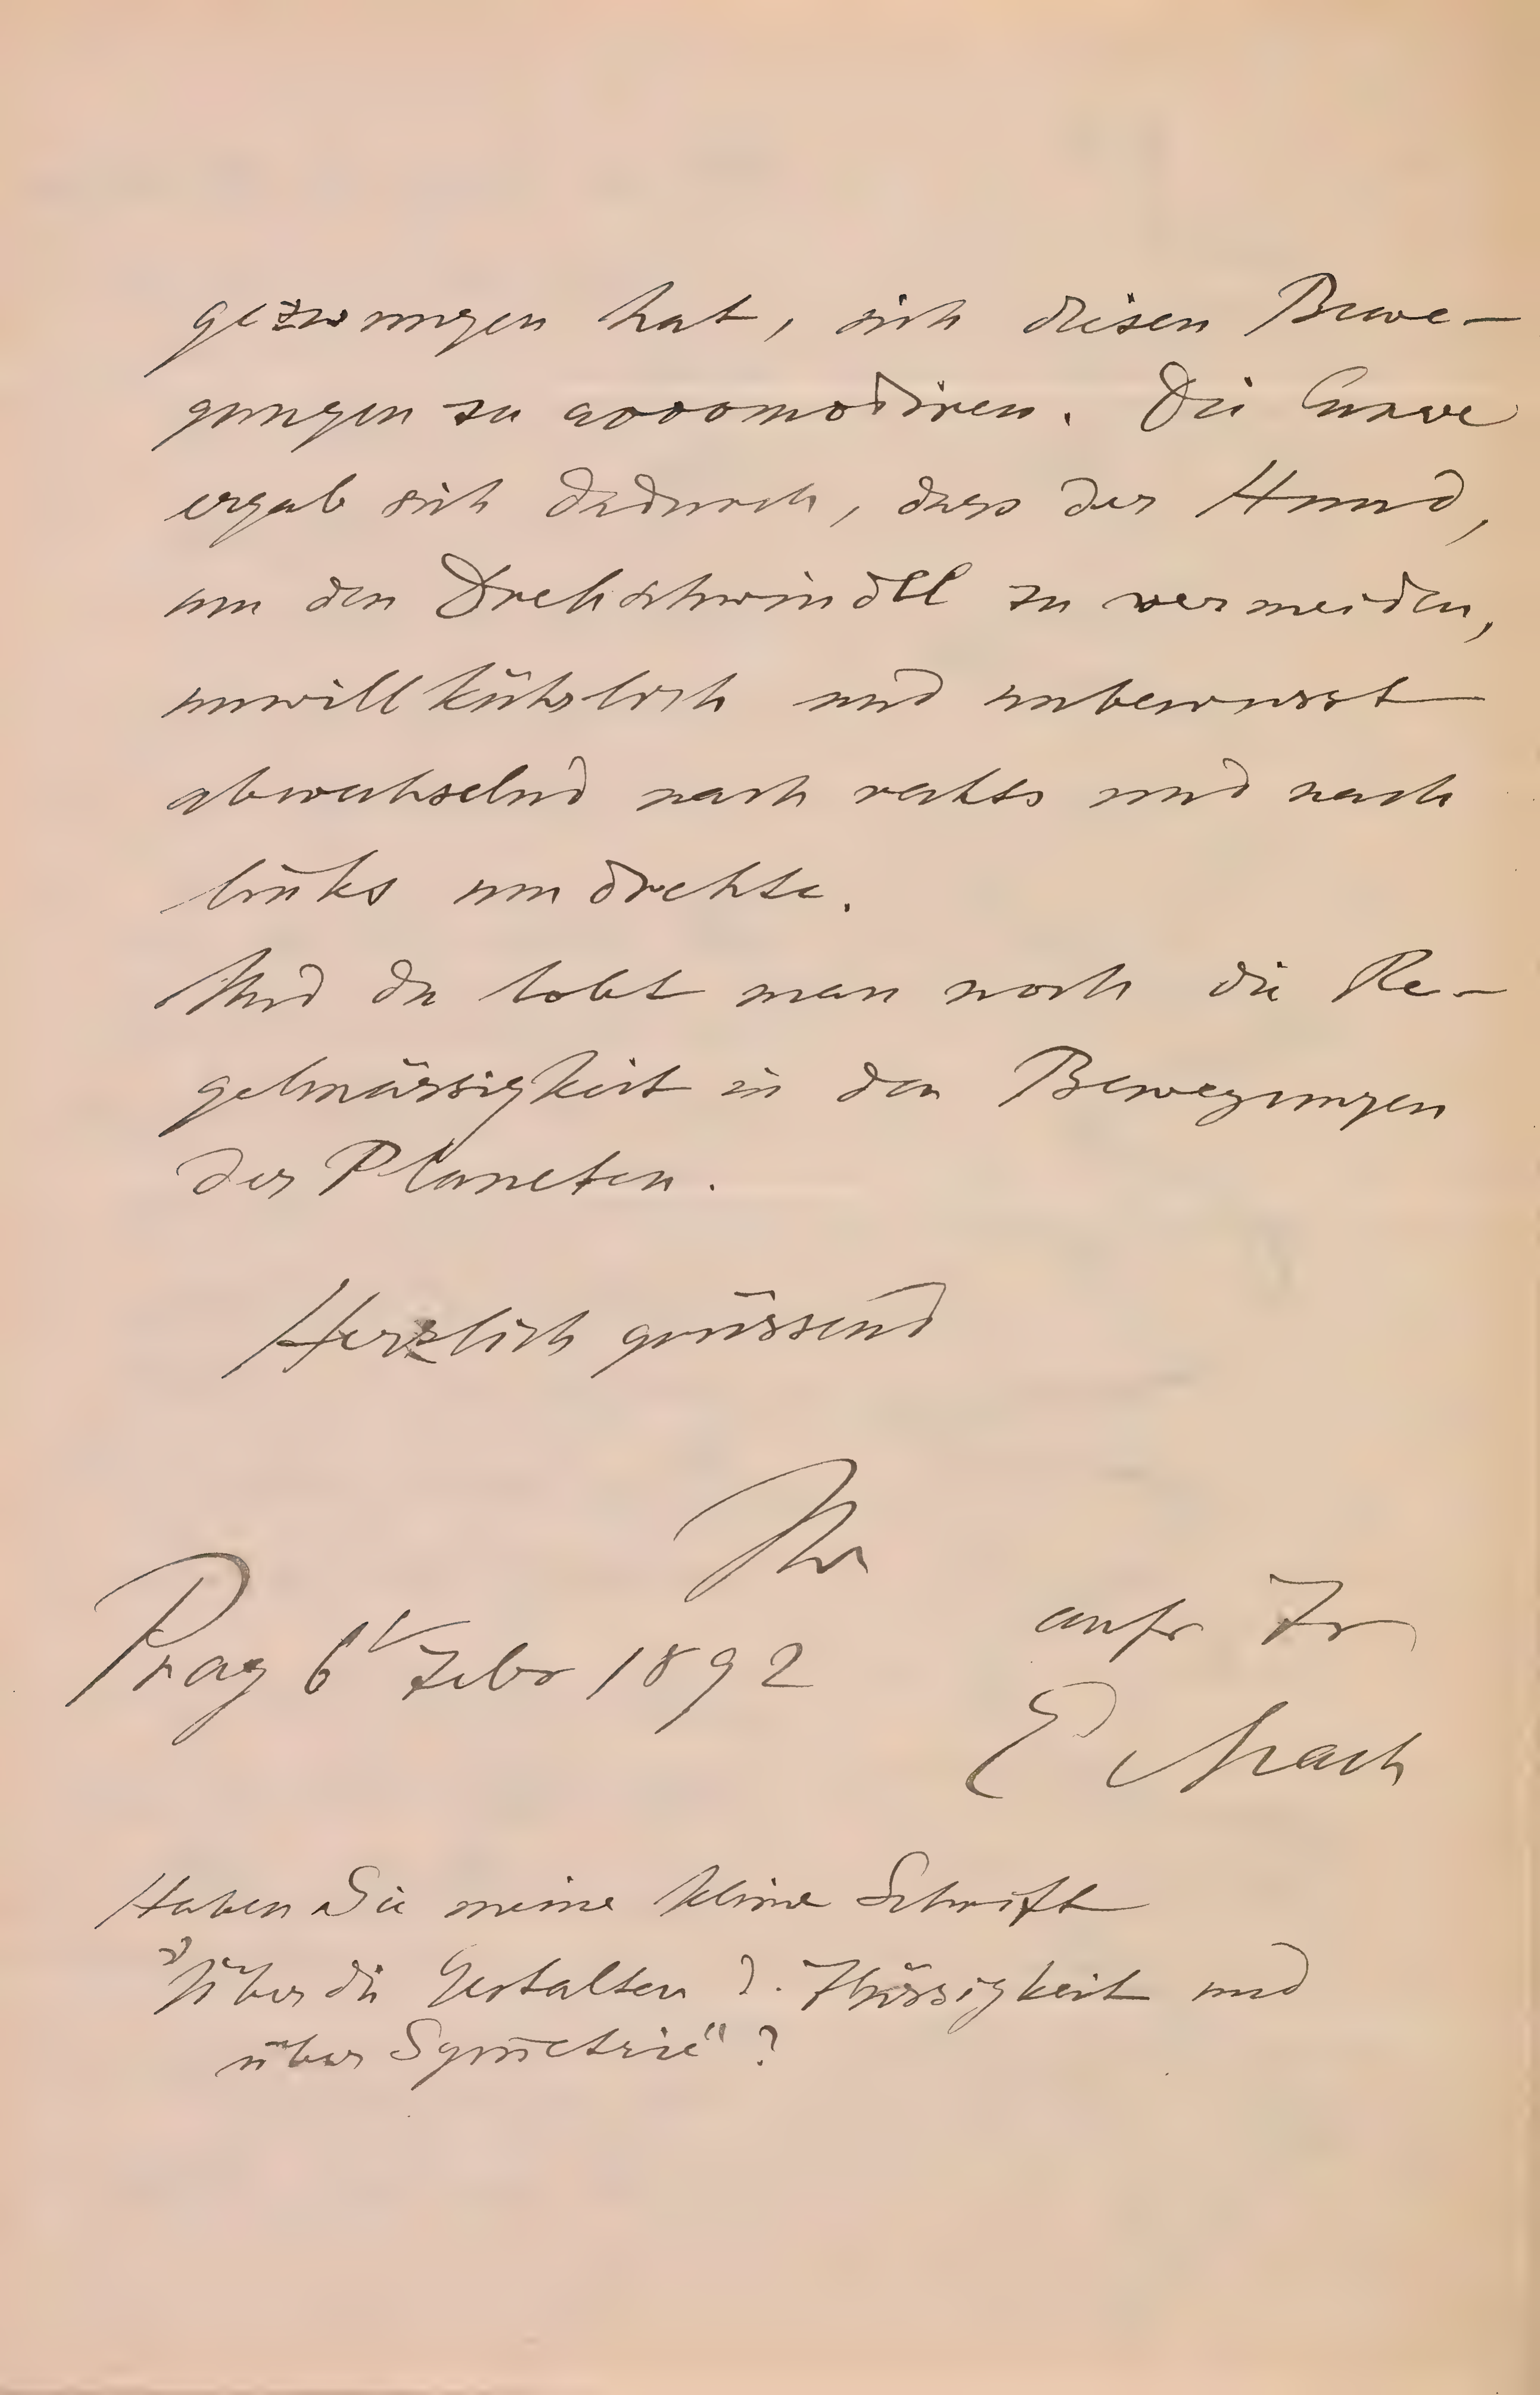 gezwungen hat, sich diesen Bewe-
gungen zu accomodiren. Die Curve
ergab sich dadurch, dass der Hund,
um den Drehschwindel zu vermeiden,
unwillkührlich und unbewusst
abwechselnd nach rechts und nach
links umdrehte.
Und da lobt man noch die Re-
gelmässigkeit in den Bewegungen
der Planeten.
Herzlich grüssend
Ihr
aufr Fr
Prag 6t Febr 1892
E Mach
Haben Sie meine kleine Schrift
"Über die Gestalten d. Flüssigkeit und
über Sym̅etrie" ?